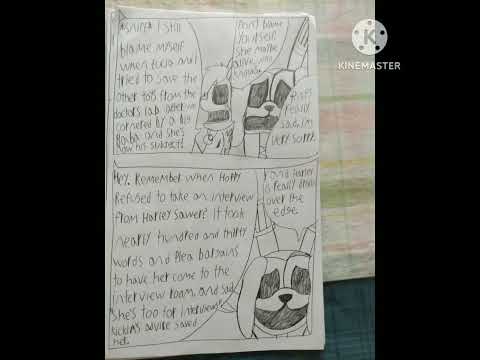 *sniff* I still
blame myself
when Lucia and I
tried to save the
other toys from the
doctor's lab after we
cornered by a big
and she's
now his subject.
Don't blame
yourself
she maybe
alive with
that's
really
sad, I'm
very sorry.
Hey. Remember when Hoppy
refused to take an interview
from Harley Sawer? It took
nearly hundred and thirty
words and plea bargains
to have her come to the
interview room, and said
she's too for interviews
advice saved
her.
and Harley
is really driven
over the
edge.
KINEMASTER